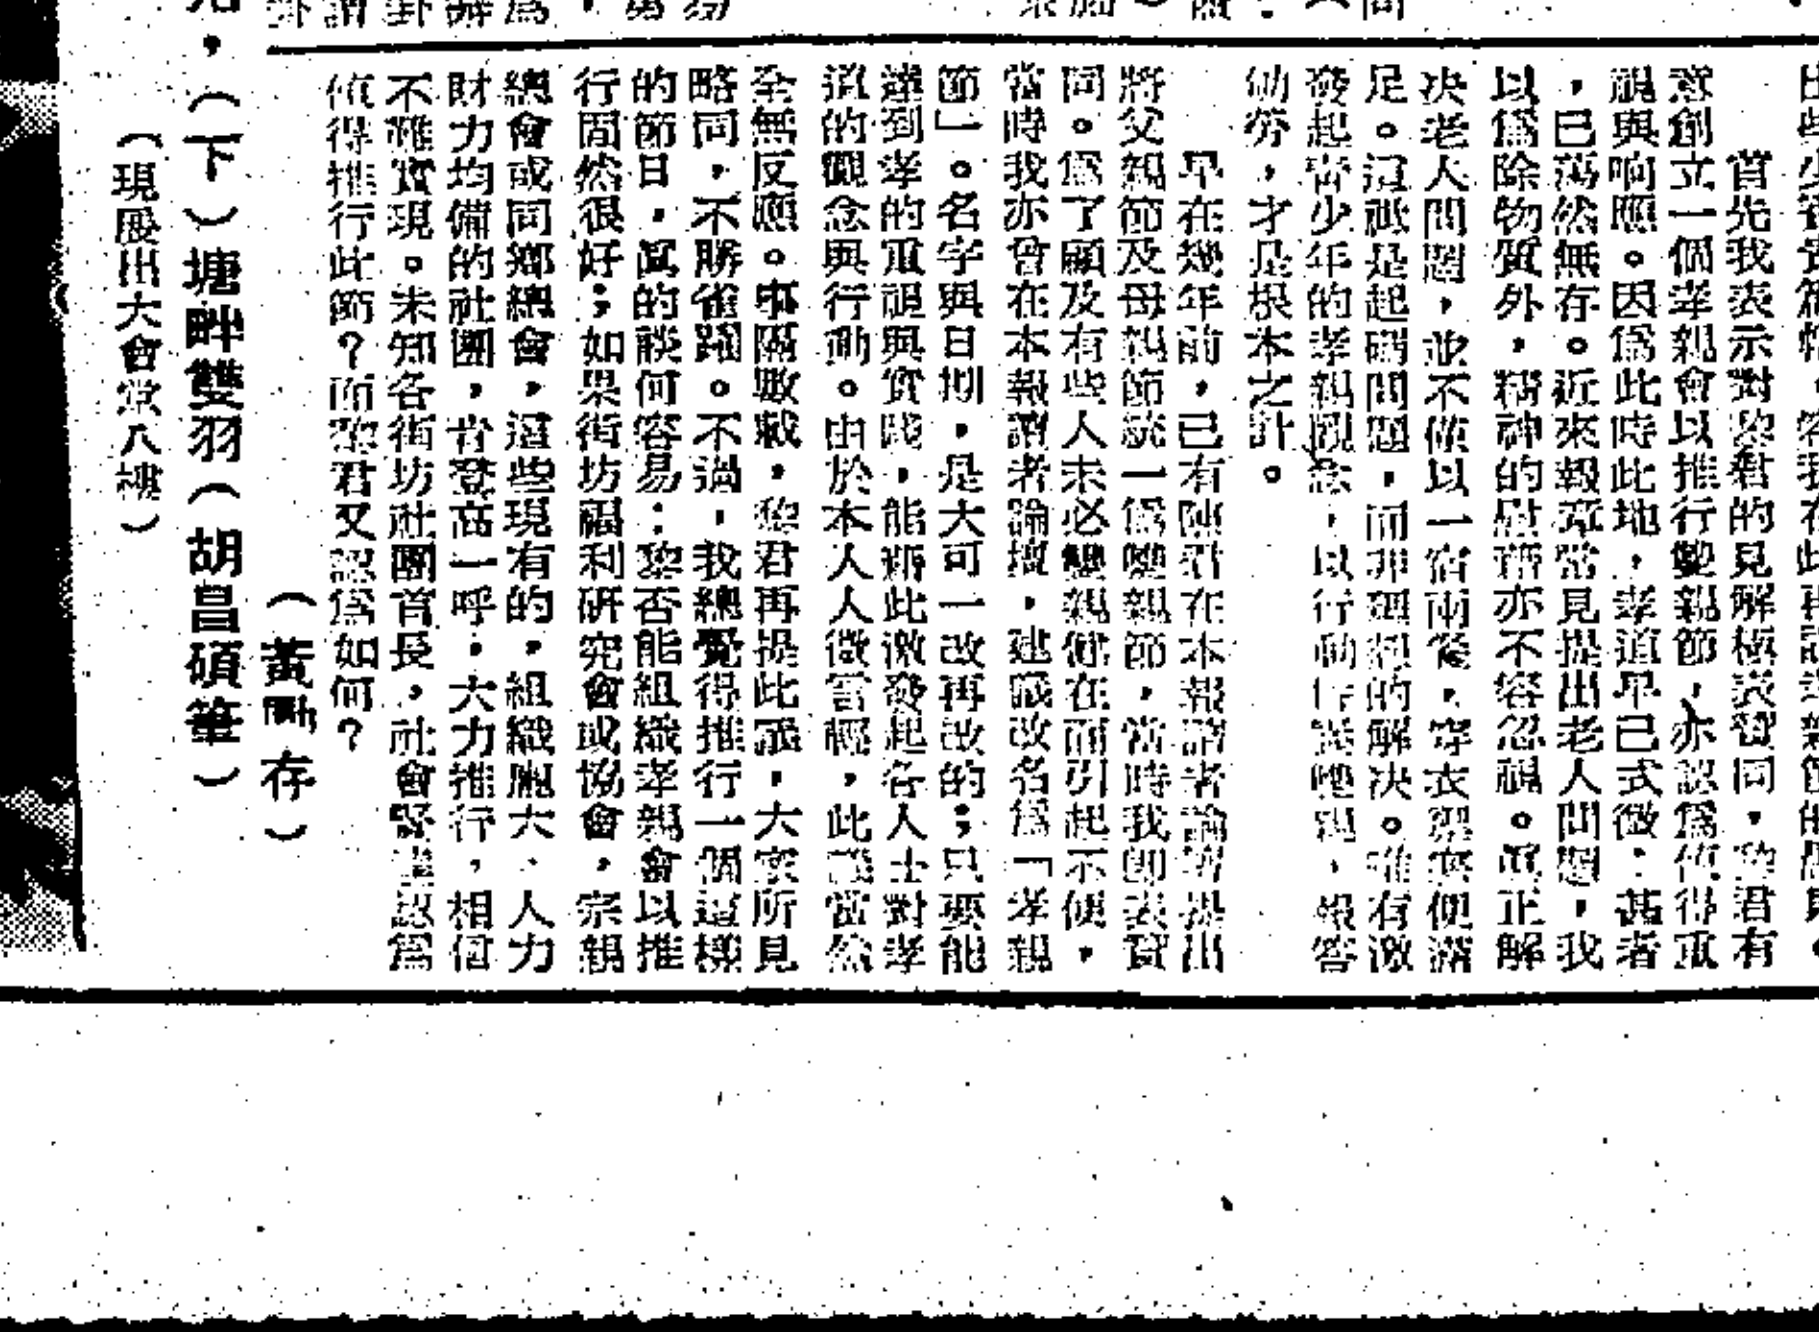 首先我表示對黎君的見解極表贊同,黎君有
意創立一個孝親會以推行雙親節,亦認爲值得重
視與响應。因爲此時此地,孝道早已式微,甚者
,已蕩然無存。近來報章常見提出老人問題,我
以爲除物質外,精神的慰藉亦不容忽視。眞正解
決老人問題,並不僅以一宿兩餐,穿衣
足。這祗是起碼問題,而非理想的解决。唯有激
發起靑少年的孝親觀念,以行動
劬勞,才是根本之計。
早在幾年前,已有陳君在本報讀者論壇提出
將父親節及母親節統一爲雙親節,當時我卽表贊
同。爲了顧及有些人未必雙親健在而引起不便,
當時我亦曾在本報讀者論壇,建議改名爲「孝親
節」。名字與日期,是大可一改再改的;只要能
達到孝的重視與實踐,能藉此激發起各人士對孝
道的觀念與行動。由於本人人微言輕,此議當然
全無反應。事隔數載,黎君再提此議,大家所見
略同,不勝雀躍。不過,我總覺得推行一個這樣
的節日,眞的談何容易:黎否能組織孝親會以推
行固然很好;如果街坊福利研究會或協會,宗親
總會或同鄉總會,這些現有的,組織龐大、人力
財力均備的社團,肯登高一呼,大力推行,相信
不難實現。未知各街坊社團首長,社會賢達認爲
值得推行此節?而黎君又認爲如何?
(黃 存)
,(下)塘畔雙羽(胡昌碩筆)
(現展出大會堂八樓)